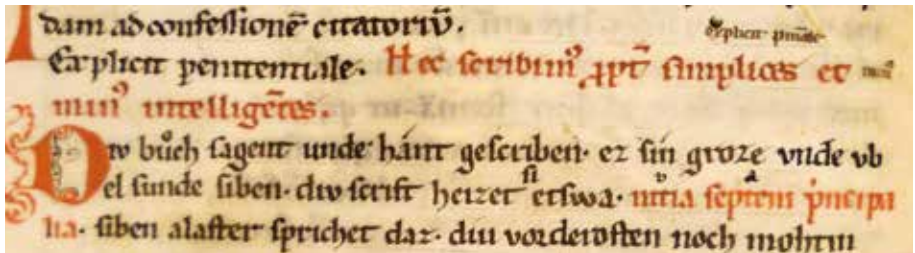 dam ad confessionē citatoriū.
Explicit penitentiale. Hec scribimꝰ ꝓpt̄ simplices et
minꝰ intelligētes.
Div bůch sagent unde hânt gescriben· ez sin groze vnde vb
el sunde siben· div scrift heizet si etswa· uitia septem pͥncipa
lia· siben alaster sprichet daz· diu vorderosten noch mohtin